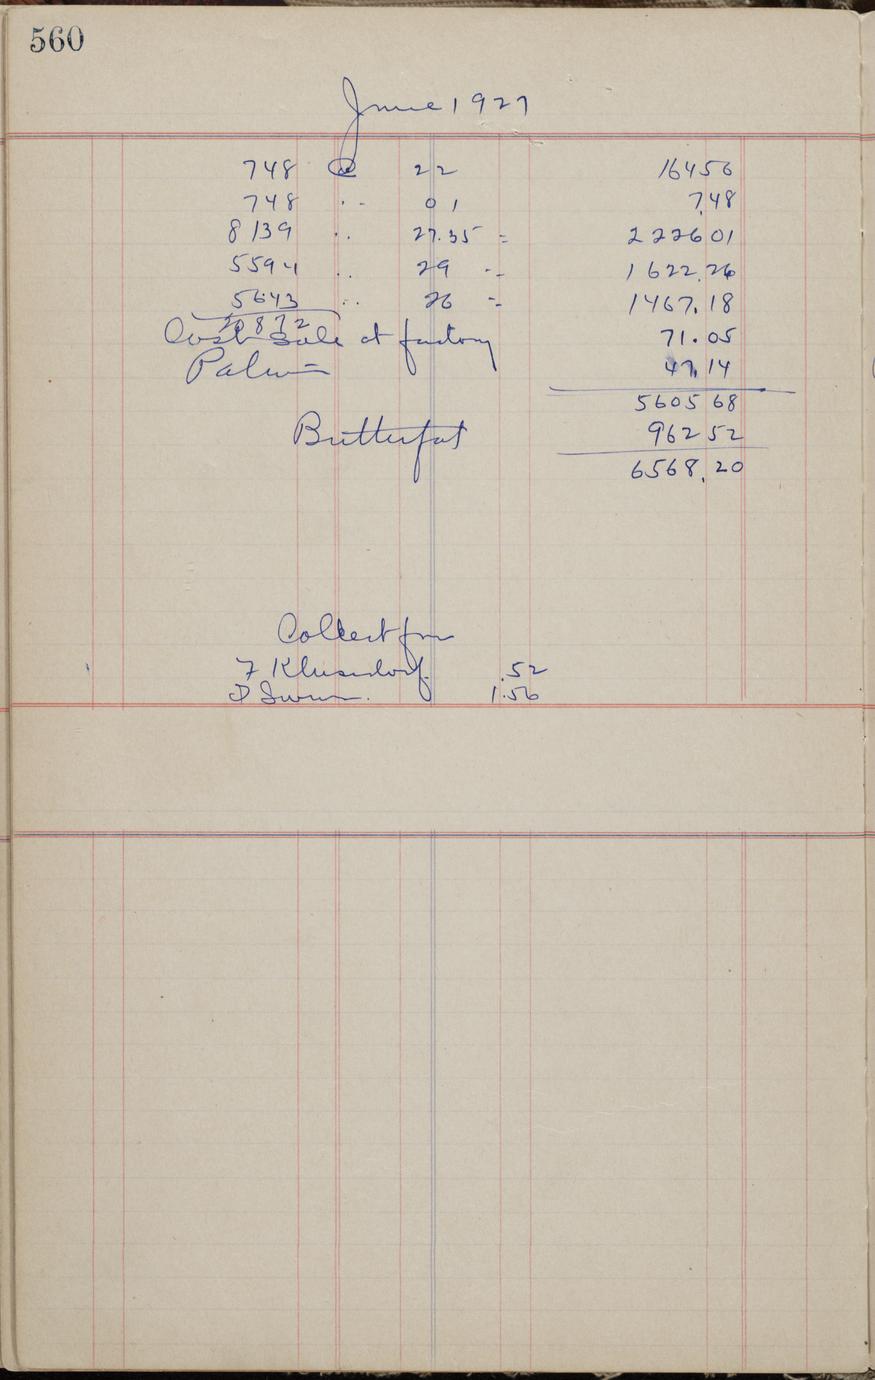 560
June 1927
748 @ 22 16456
748 .. 01 7.48
8139 .. 27.35 = 222601
5594 .. 29 .. 1622.26
5643 .. 26 = 1467.18
20872
Cash Sale at factory 71.05
47.14
5605 68
Butterfat 962 52
6568.20
Collect from
F Klusendorf .52
1.56